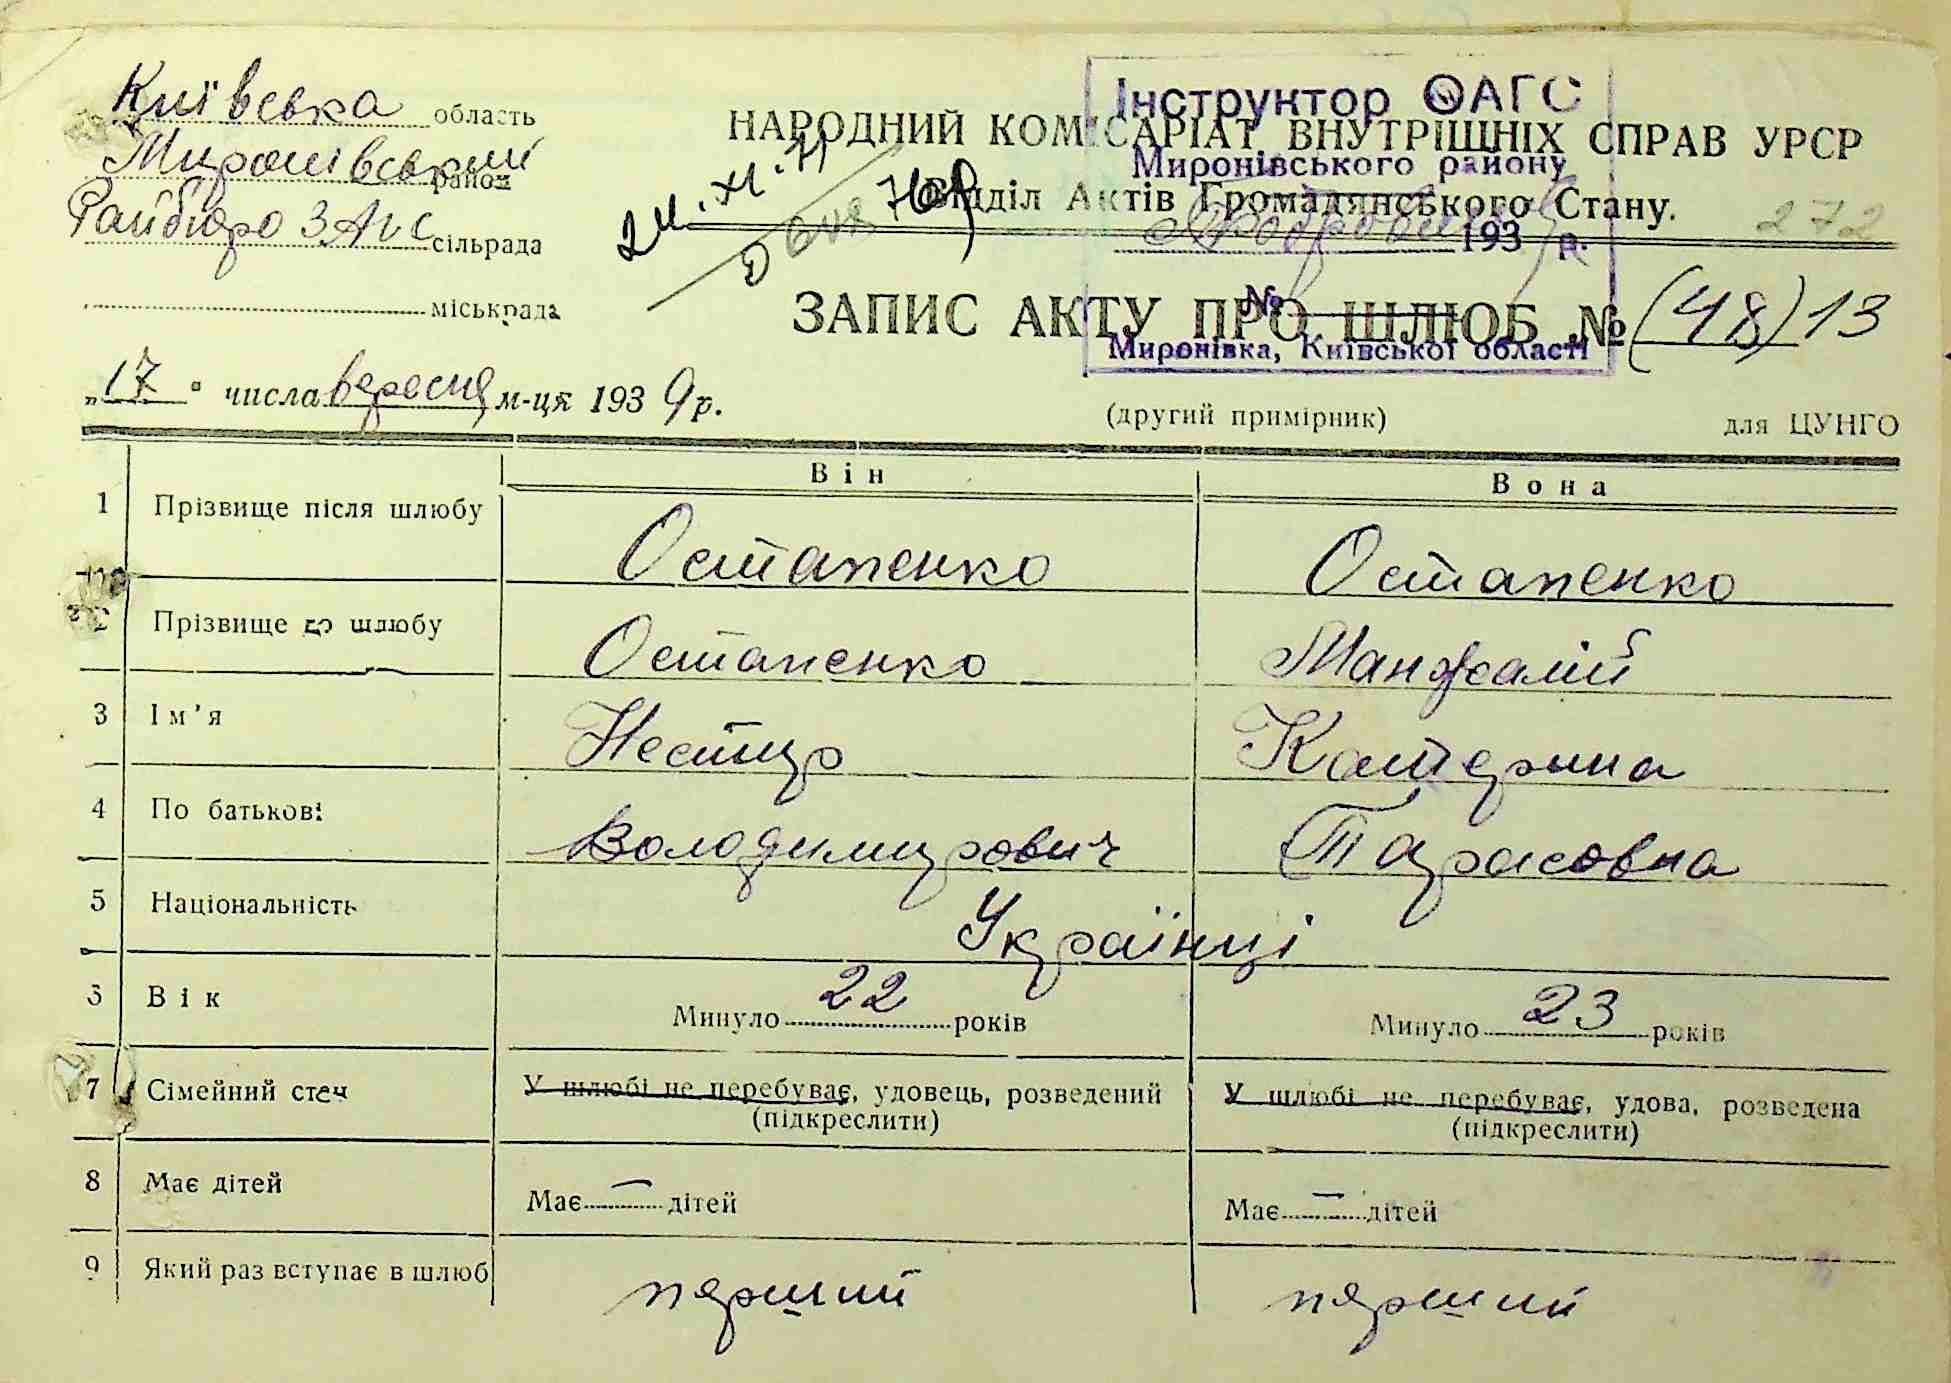 Київська область
Миронівський район
Райбюро ЗАГС сільрада
міськрада
Інструктор ВАГС
Миронівського району
193 р.
№
Миронівка, Київської області
НАРОДНИЙ КОМІСАРІАТ ВНУТРІШНІХ СПРАВ УРСР
Відділ Актів Громадянського Стану.
272
ЗАПИС АКТУ ПРО ШЛЮБ № (48) 13
„17" числа вересня м-ця 1939 р.
(другий примірник)
для ЦУНГО
Він
Вона
1 Прізвище після шлюбу Остапенко Остапенко
2 Прізвище до шлюбу Остапенко Манжалій
3 Ім'я Нестир Катерина
4 По батькові Володимирович Тарасовна
5 Національність Українці
6 Вік Минуло 22 років Минуло 23 років
7 Сімейний стан У шлюбі не перебуває, удовець, розведений У шлюбі не перебуває, удова, розведена
(підкреслити) (підкреслити)
8 Має дітей Має — дітей Має — дітей
9 Який раз вступає в шлюб перший перший